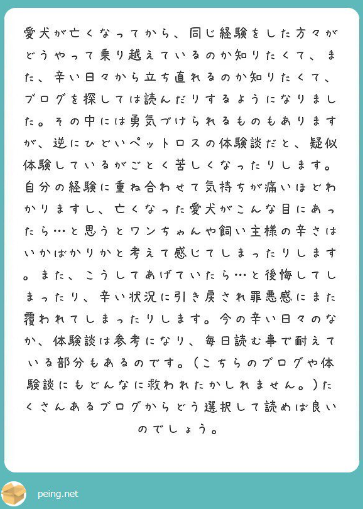 愛犬が亡くなってから、同じ経験をした方々が
どうやって乗り越えているのか知りたくて、ま
た、辛い日々から立ち直れるのか知りたくて、
ブログを探しては読んだりするようになりまし
た。その中には勇気づけられるものもあります
が、逆にひどいペットロスの体験談だと、疑似
体験しているがごとく苦しくなったりします。
自分の経験に重ね合わせて気持ちが痛いほどわ
かりますし、亡くなった愛犬がこんな目にあっ
たら…と思うとワンちゃんや飼い主様の辛さは
いかばかりかと考えて感じてしまったりします
。また、こうしてあげていたら…と後悔してし
まったり、辛い状況に引き戻され罪悪感にまた
覆われてしまったりします。今の辛い日々のな
か、体験談は参考になり、毎日読む事で耐えて
いる部分もあるのです。(こちらのブログや体
験談にもどんなに救われたかしれません。)た
くさんあるブログからどう選択して読めば良い
のでしょう。
peing.net